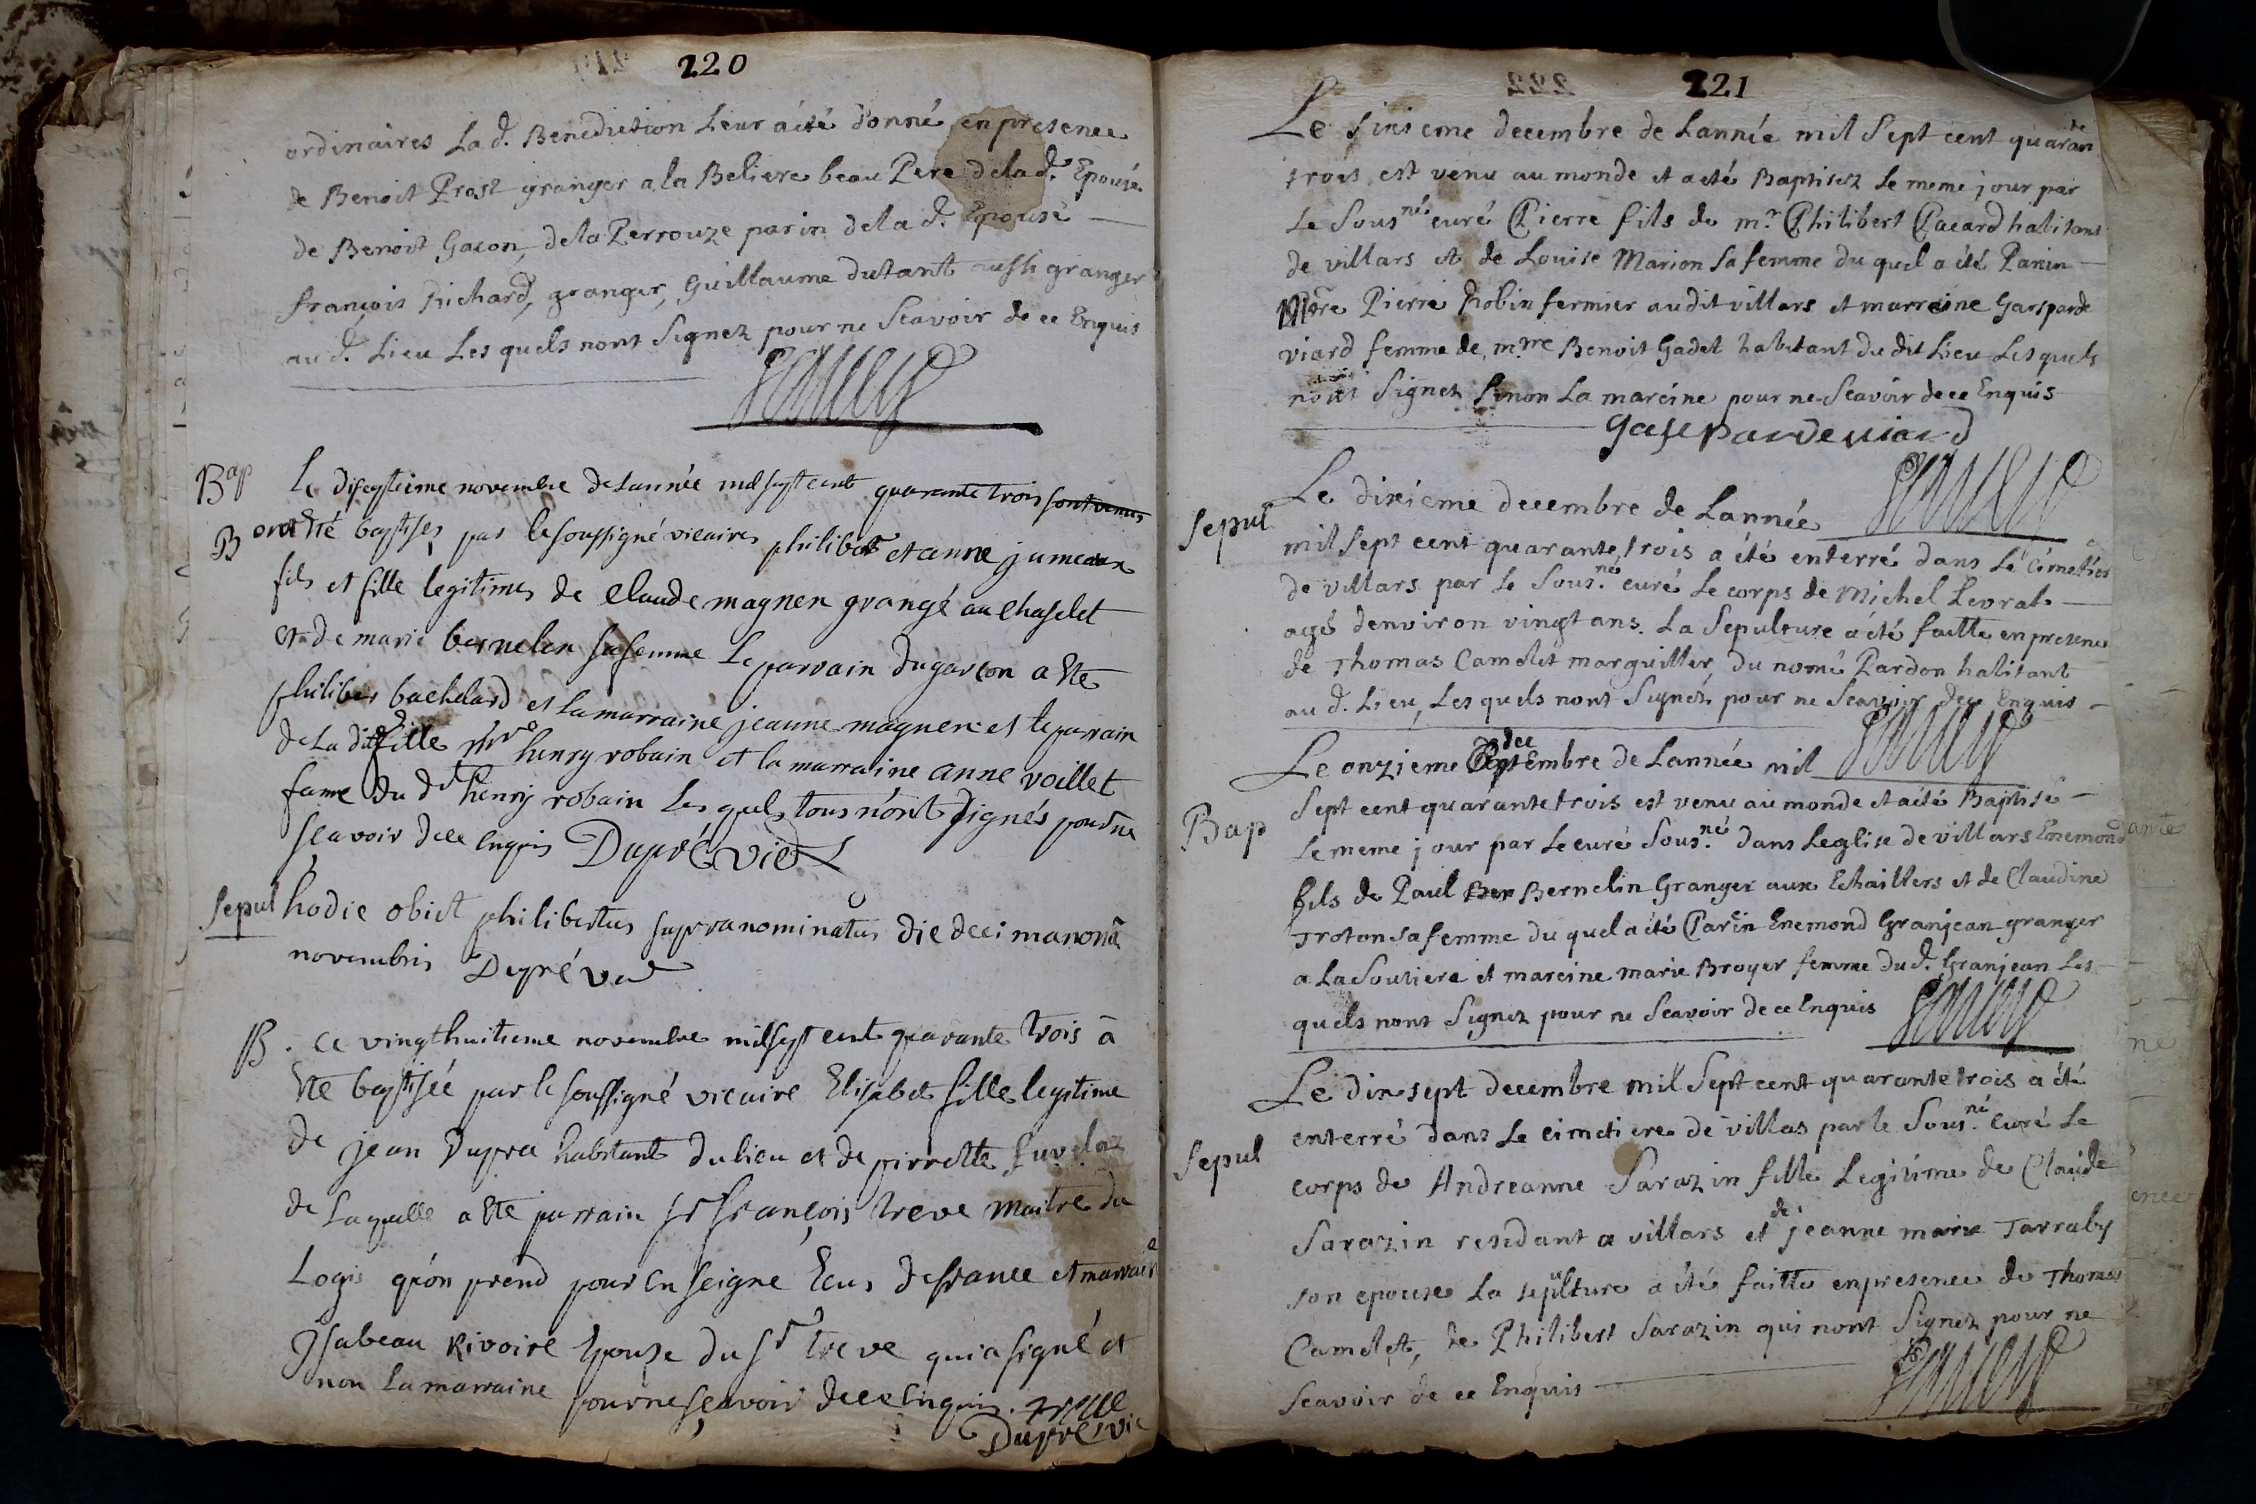 220
ordinaires La d. Benediction Leur a été donné en presence
de Benoit Prost granger a la Beliere beau Pere de la d. Epouse
de Benoit Gacon, de la Perrouze parin de la d. Epouse
françois Richard, granger, Guillaume dutant aussi granger
au d. Lieu Les quels nont Signez pour ne Scavoir de ce Enquis
Bap Le dixseptieme novembre de Lannée mil sept cent quarante trois sont venus
B ont eté baptises par le soussigné vicaire philibert et anne jumeaux
fils et fille legitimes de Claude magnen grangé au Chaselet
et de marie bernelin sa femme Le parrain du garcon a ete
philibert bachelard et La marraine jeanne magnen et le parrain
de La ditte fille henry robain et la marraine anne voillet
fame du dt henry robain Les quels tous n'ont signés pour ne
scavoir de ce enquis Dupré vic
Sepul hodie obiit philibertus supranominatus die decimanona
novembris Dupré vic
B. Ce vingt huitieme novembre mil sept cent quarante trois a
ete baptisée par le soussigné vicaire Elisabet fille legitime
de jean Dupra habitant du lieu et de pierrette
de Laquelle a ete parrain sr françois treve maitre du
Logis qu'on prend pour enseigne Ecus de france et marraine
Isabeau Rivoire Epouse du sr treve qui a signé et
non La marraine pour ne scavoir de ce enquis. treve
Dupré vic
221
Le sixieme decembre de Lannée mil Sept cent quarante
trois est venu au monde et a eté Baptisez le meme jour par
Le Sousné curé Pierre fils de mr. Philibert Pacard habitant
de villars et de Louise Marion Sa femme du quel a été Parin
Mtre Pierre Robin fermier audit villars et marreine Gasparde
viard femme de mtre Benoit Gadet habitant du dit Lieu Les quels
nont Signez Sinon La mareine pour ne Scavoir de ce Enquis
Gaseparde viard
Le dixieme decembre de Lannée
Sepul mil Sept cent quarante trois a été enterré dans Le Cimetier
de villars par Le Sous.né curé Le corps de Michel Levrat
agé denviron vingt ans. La Sepulture a été faitte en presence
de Thomas Camelet marguillier, du nomé Pardon habitant
au d. Lieu, Les quels nont Signéz pour ne Scavoir de ce Enquis
Le onzieme decembre de Lannée mil
Sept cent quarante trois est venu au monde et a été Baptisé
Bap Le meme jour par Le curé Sous.né dans Leglise de villars Enemond
fils de Paul Ber Bernelin Granger aux Echailliers et de Claudine
Troton sa femme du quel a été Parin Enemond Granjean granger
a La Soutiere et mareine marie Broyer femme du d. Granjean Les
quels nont Signez pour ne Scavoir de ce Enquis
Le dix sept decembre mil Sept cent quarante trois a été
enterré dans Le cimetiere de villas par le Sous.né Curé Le
Sepul corps de Andreanne Sarazin fille Legitime de Claude
Sarazin residant a villars et de jeanne marie Tarraby
son epouse La sepulture a été faitte en presence de Thomas
Camelet, de Philibert Sarazin qui nont Signez pour ne
Scavoir de ce Enquis